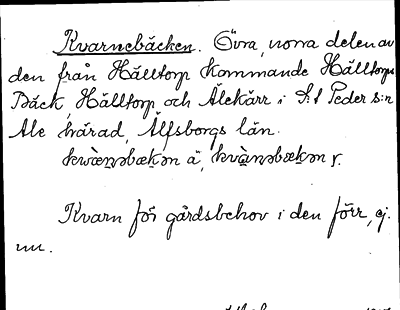 Kvarnebäcken. Övra, norra delen av
den från Hälltorp kommande Hälltorps
Bäck, Hälltorp och Älekärr i S:t Peder s:n
Ale härad, Älfsborgs län.
ä, y.
Kvarn för gårdsbehov i den förr, ej
nu.